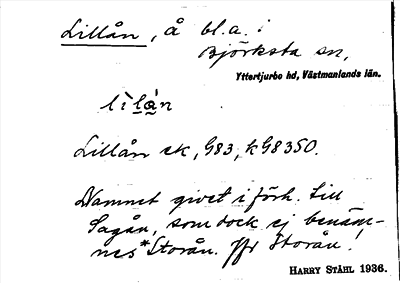 Lillån, å bl.a. i
Björksta sn,
Yttertjurbo hd, Västmanlands län.
lìlàn
Lillån ek, G83, kG8350.
Namnet givet i förh. till
Sagån, som dock ej benäm-
nes *Storån. Jfr Storån!
HARRY STÅHL 1936.